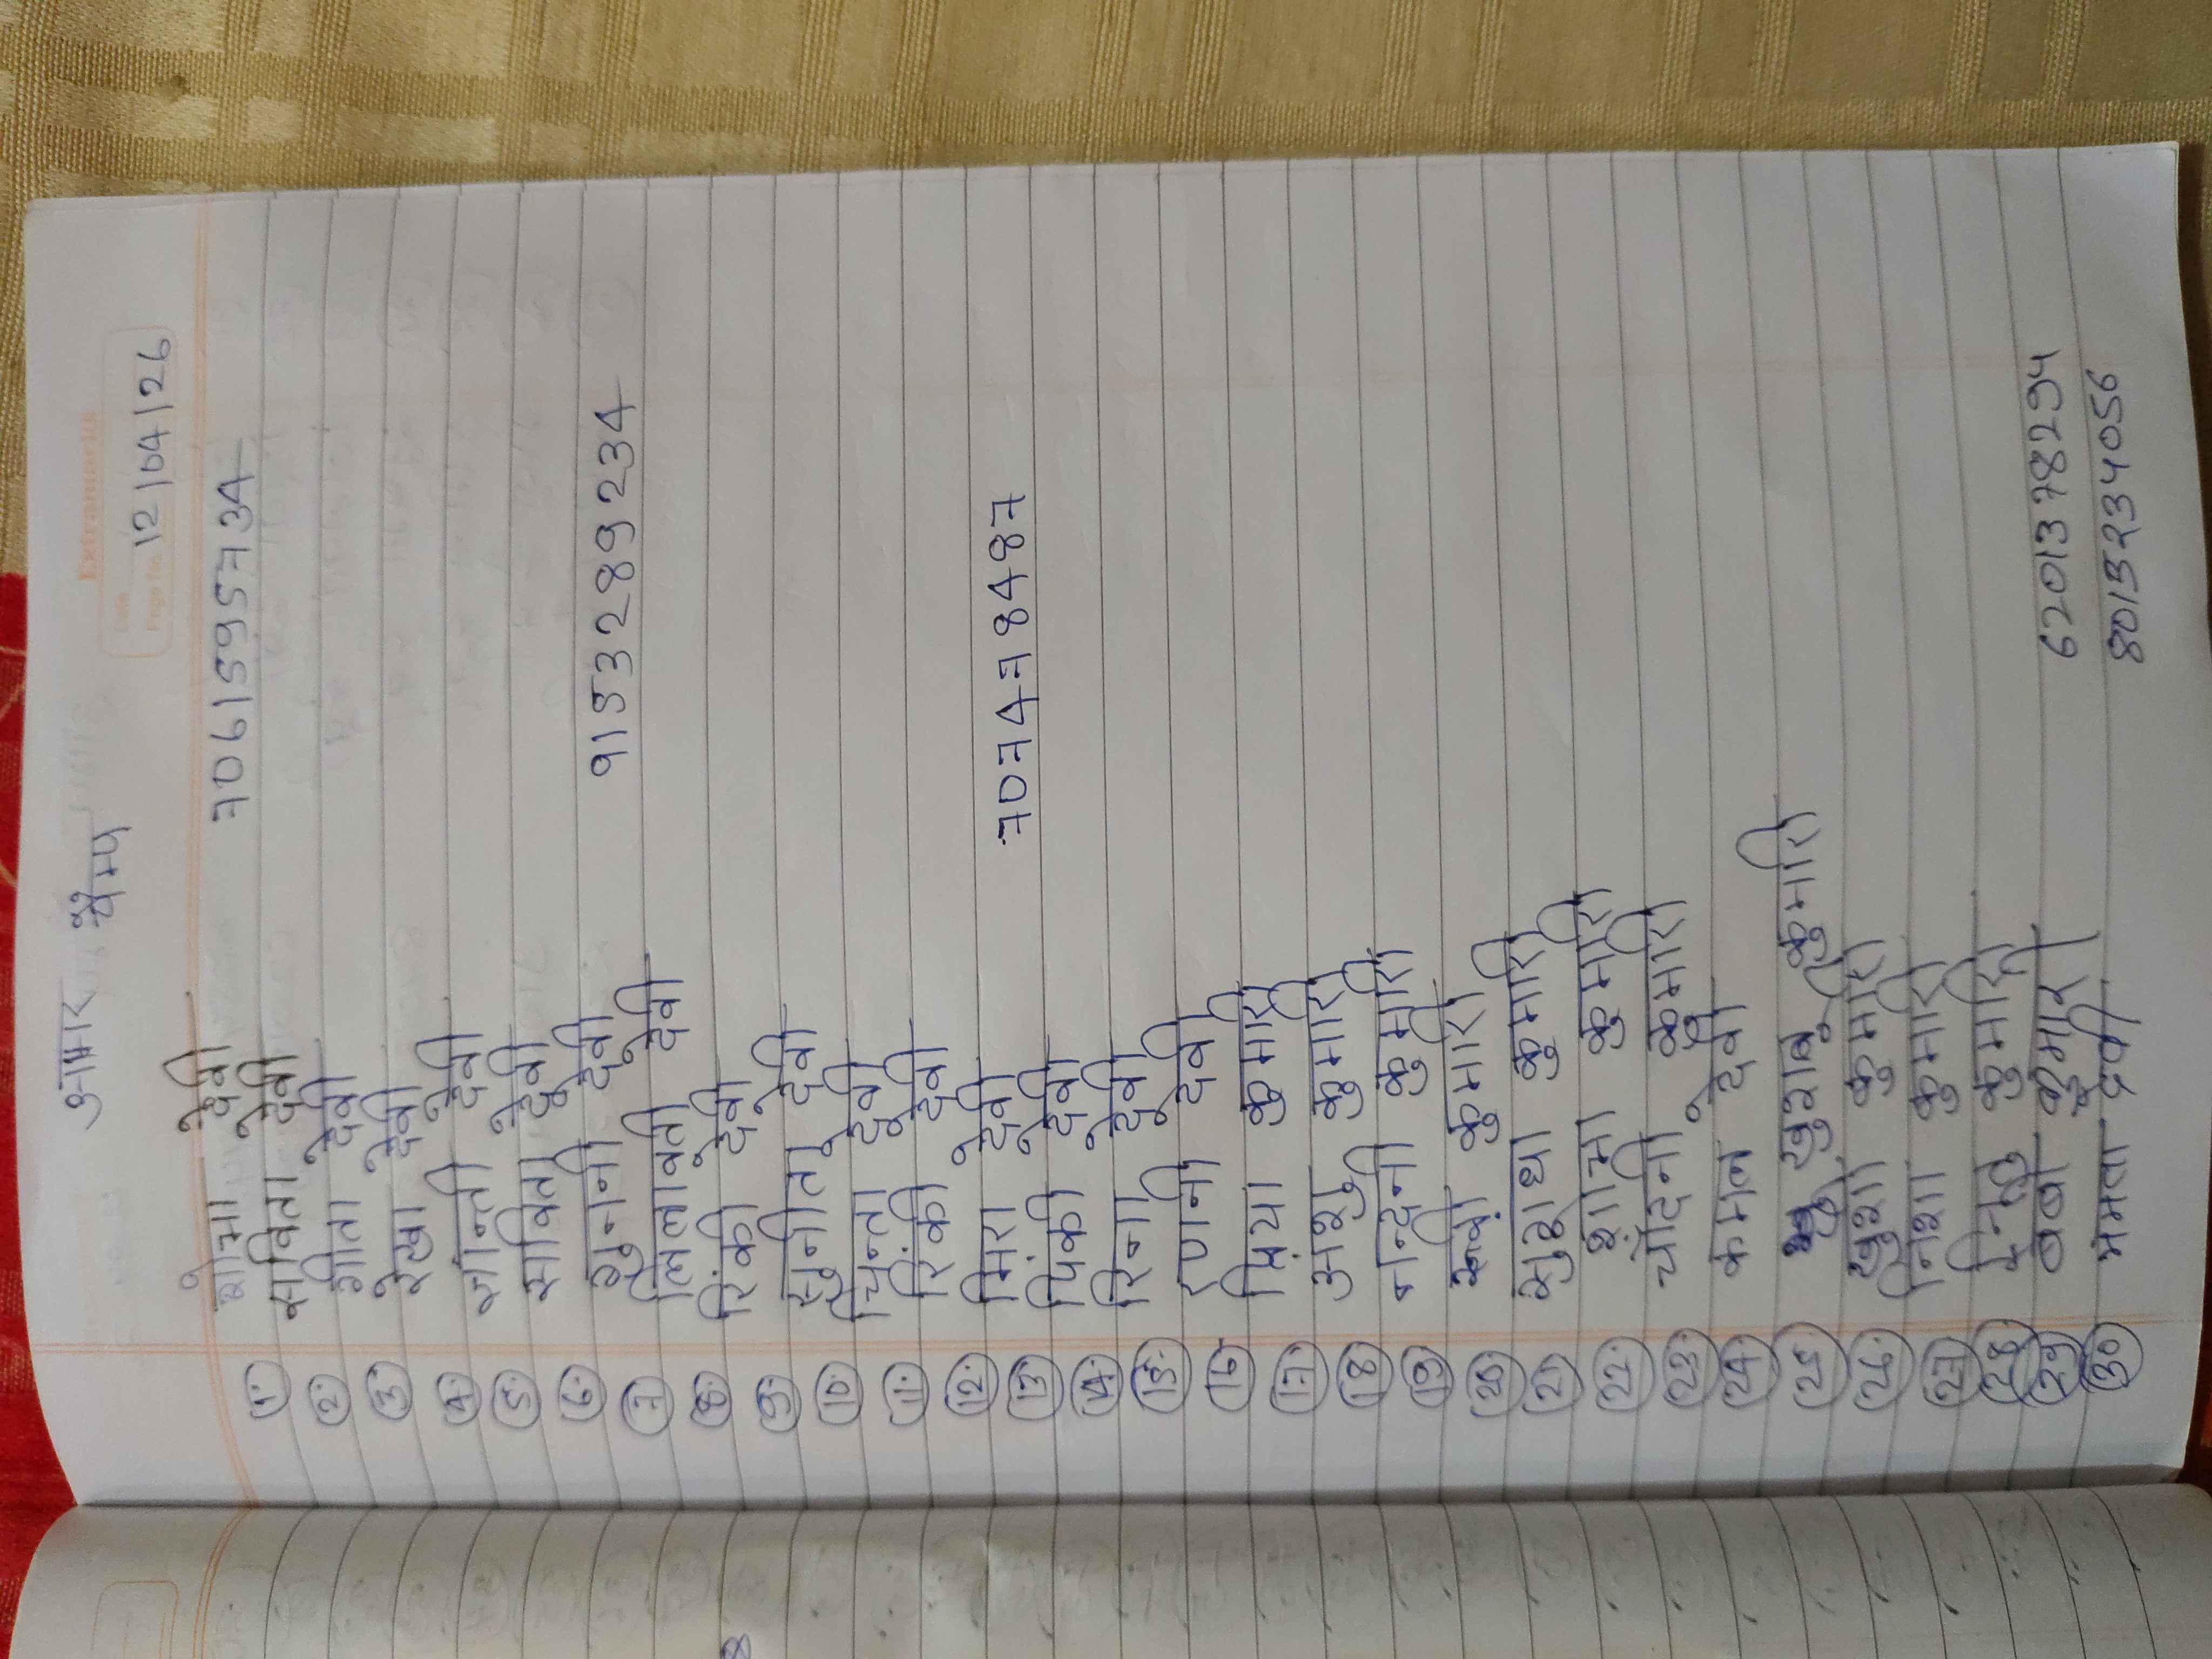 Extramarks
Date
Page No.
12/04/26
आभार कैम्प
शोभा देवी 7061595734
1. सविता देवी
2. गीता देवी
3. रेखा देवी
4. शान्ती देवी
5. सविता देवी
6. सुगनी देवी 9153289234
7. लिलावती देवी
8. रिंकी देवी
9. सुनीता देवी
10. चिन्ता देवी
11. रिंकी देवी
12. मिरा देवी 7074778487
13. पिंकी देवी
14. रिना देवी
15. रानी देवी
16. प्रिया कुमारी
17. अंशु कुमारी
18. नन्दिनी कुमारी
19. कुमारी
20. कुमारी
21. कुमारी
22. चाँदनी कुमारी
23. कमल देवी
24. खुशबु कुमारी
25. खुशी कुमारी
26. निशा कुमारी
27. कुमारी
28. कुमारी 6201378294
29. ममता देवी 8015234056
30